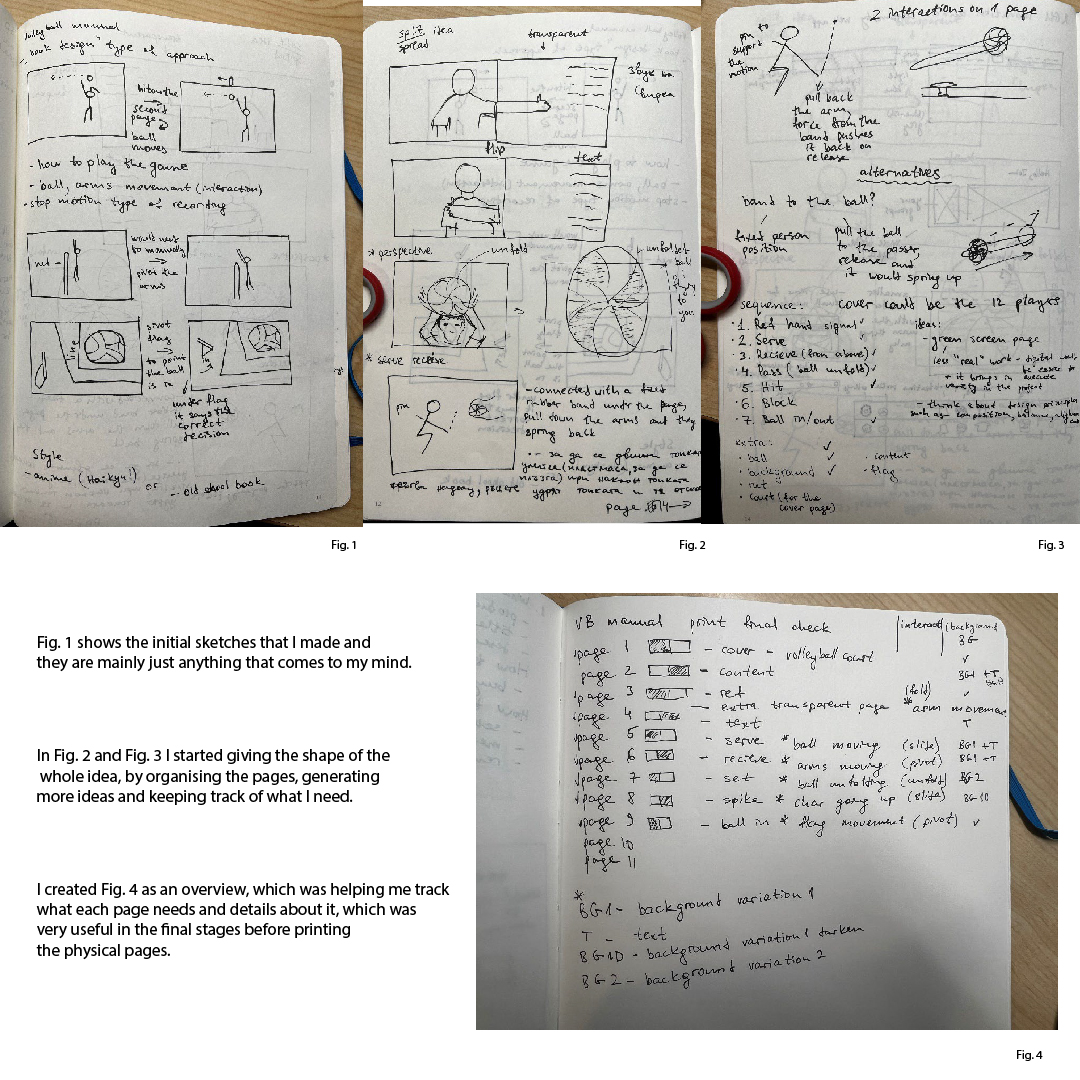 volleyball manual
"book design" type of approach
hits on the
second
page
ball
moves
- how to play the game
- ball, arms movement (interaction)
- stop motion type of recording
net
would need
to manually
pivot the
arms
line
pivot
flag
to point
the ball
is in
under flag
it says the
correct
decision
Style
- anime (Haikyu!) or
- old school book
split idea
spread
transparent
flip
text
* perspective
unfold
unfolded
ball
to
you
* serve recieve
pin
- connected with a
rubber band under the page,
pull down the arms and they
spring back
- за да се движи топката
page 14 →
2 interactions on 1 page
pin to
support
the
motion
pull back
the arm,
force from the
band pushes
it back on
release
alternatives
band to the ball?
fixed person
position
pull the ball
to the passer,
release and
it would spring up
sequence: cover could be the 12 players
1. Ref hand signal ✓
2. Serve ✓
3. Recieve (from above) ✓
4. Pass (ball unfold) ✓
5. Hit ✓
6. Block
7. Ball in/out ✓
ideas:
- green screen page
less "real" work - digital
be easier to
+ it brings in execute
variety in the project
- think about design principles
such as composition, balance,
extra:
· ball ✓
· background ✓
· net
· court (for the
cover page)
· content
· flag
Fig. 1
Fig. 2
Fig. 3
Fig. 1 shows the initial sketches that I made and
they are mainly just anything that comes to my mind.
In Fig. 2 and Fig. 3 I started giving the shape of the
whole idea, by organising the pages, generating
more ideas and keeping track of what I need.
I created Fig. 4 as an overview, which was helping me track
what each page needs and details about it, which was
very useful in the final stages before printing
the physical pages.
VB manual print final check | interact | background
page 1 - cover - volleyball court BG
page 2 - content ✓
page 3 - ref BG1 + T
- extra transparent page (fold) * arm movement ✓
page 4 - text T
page 5 - serve * ball moving (slide) BG1 + T
page 6 - recieve * arms moving (pivot) BG1 + T
page 7 - set * ball unfolding (unfold) BG2
page 8 - spike * char going up (slide) BG1D
page 9 - ball in * flag movement (pivot) ✓
page 10
page 11
*
BG1 - background variation 1
T - text
BG1D - background variation 1 darken
BG2 - background variation 2
Fig. 4